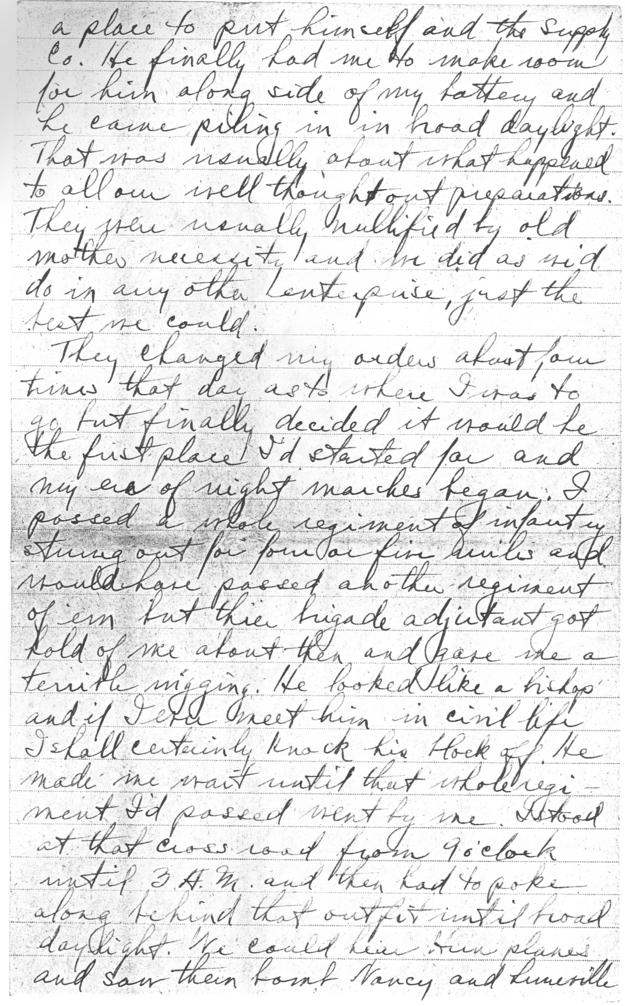 a place to put himself and the Supply
Co. He finally had me to make room
for him along side of my battery and
he came piling in in broad daylight.
That was usually about what happened
to all our well thought out preparations.
They were usually nullified by old
mother necessity and we did as we'd
do in any other enterprise, just the
best we could.
They changed my orders about four
times that day as to where I was to
go but finally decided it would be
the first place I'd started for and
my era of night marches began. I
passed a whole regiment of infantry
strung out for four or five miles and
would have passed another regiment
of em but thier brigade adjutant got
hold of me about then and gave me a
terrible nigging. He looked like a bishop
and if I ever meet him in civil life
I shall certainly knock his block off. He
made me wait until that whole regi-
ment I'd passed went by me. I stood
at that cross road from 9 o'clock
until 3 A.M. and then had to poke
along behind that outfit until broad
daylight. We could hear Hun planes
and saw them bomb Nancy and Luneville